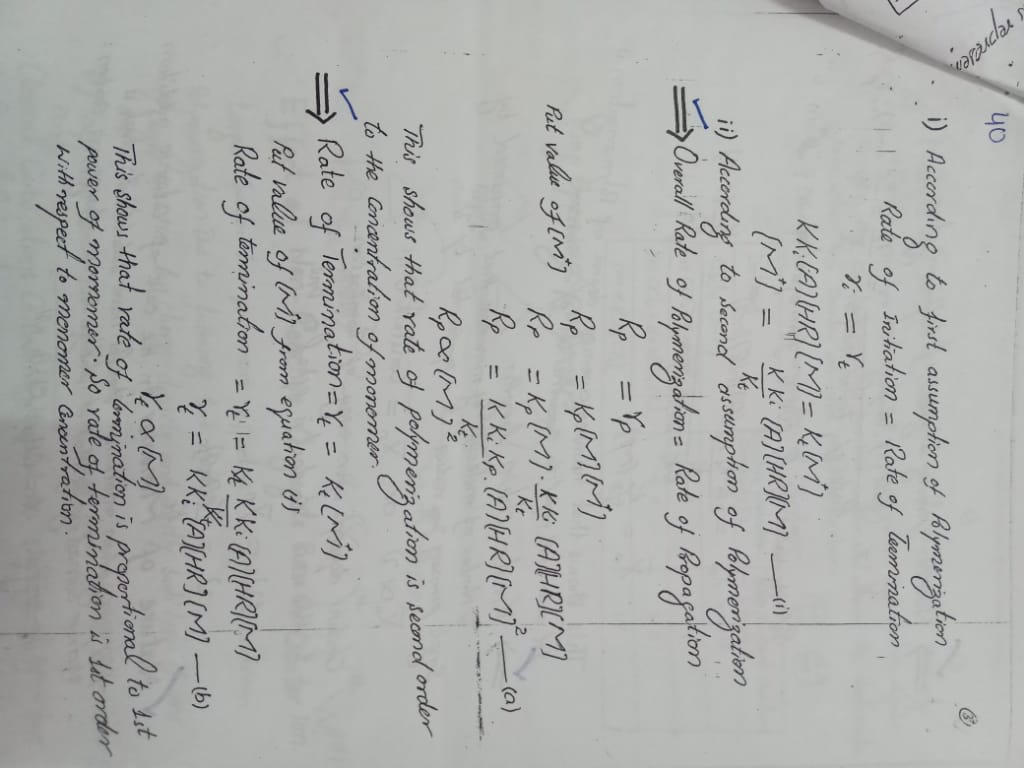 40
(3)
i) According to first assumption of Polymerization
Rate of Initation = Rate of Termination
γi = γt
KKi[A][HR][M] = Kt[M⁺]
[M⁺] = KKi/Kt [A][HR][M] —(1)
ii) According to second assumption of Polymerization
⇒ Overall Rate of Polymerization = Rate of Propagation
Rp = γp
Rp = Kp[M][M⁺]
Put value of [M⁺]
Rp = Kp[M]. KKi/Kt [A][HR][M]
Rp = KKi.Kp/Kt . [A][HR][M]² —(a)
Rp ∝ [M]²
This shows that rate of polymerization is second order
to the concentration of monomer.
⇒ Rate of Termination = γt = Kt[M⁺]
Put value of [M⁺] from equation (1)
Rate of termination = γt = Kt KKi/Kt [A][HR][M]
γt = KKi [A][HR][M] —(b)
γt ∝ [M]
This shows that rate of termination is proportional to 1st
power of monomer. So rate of termination is 1st order
with respect to monomer concentration.